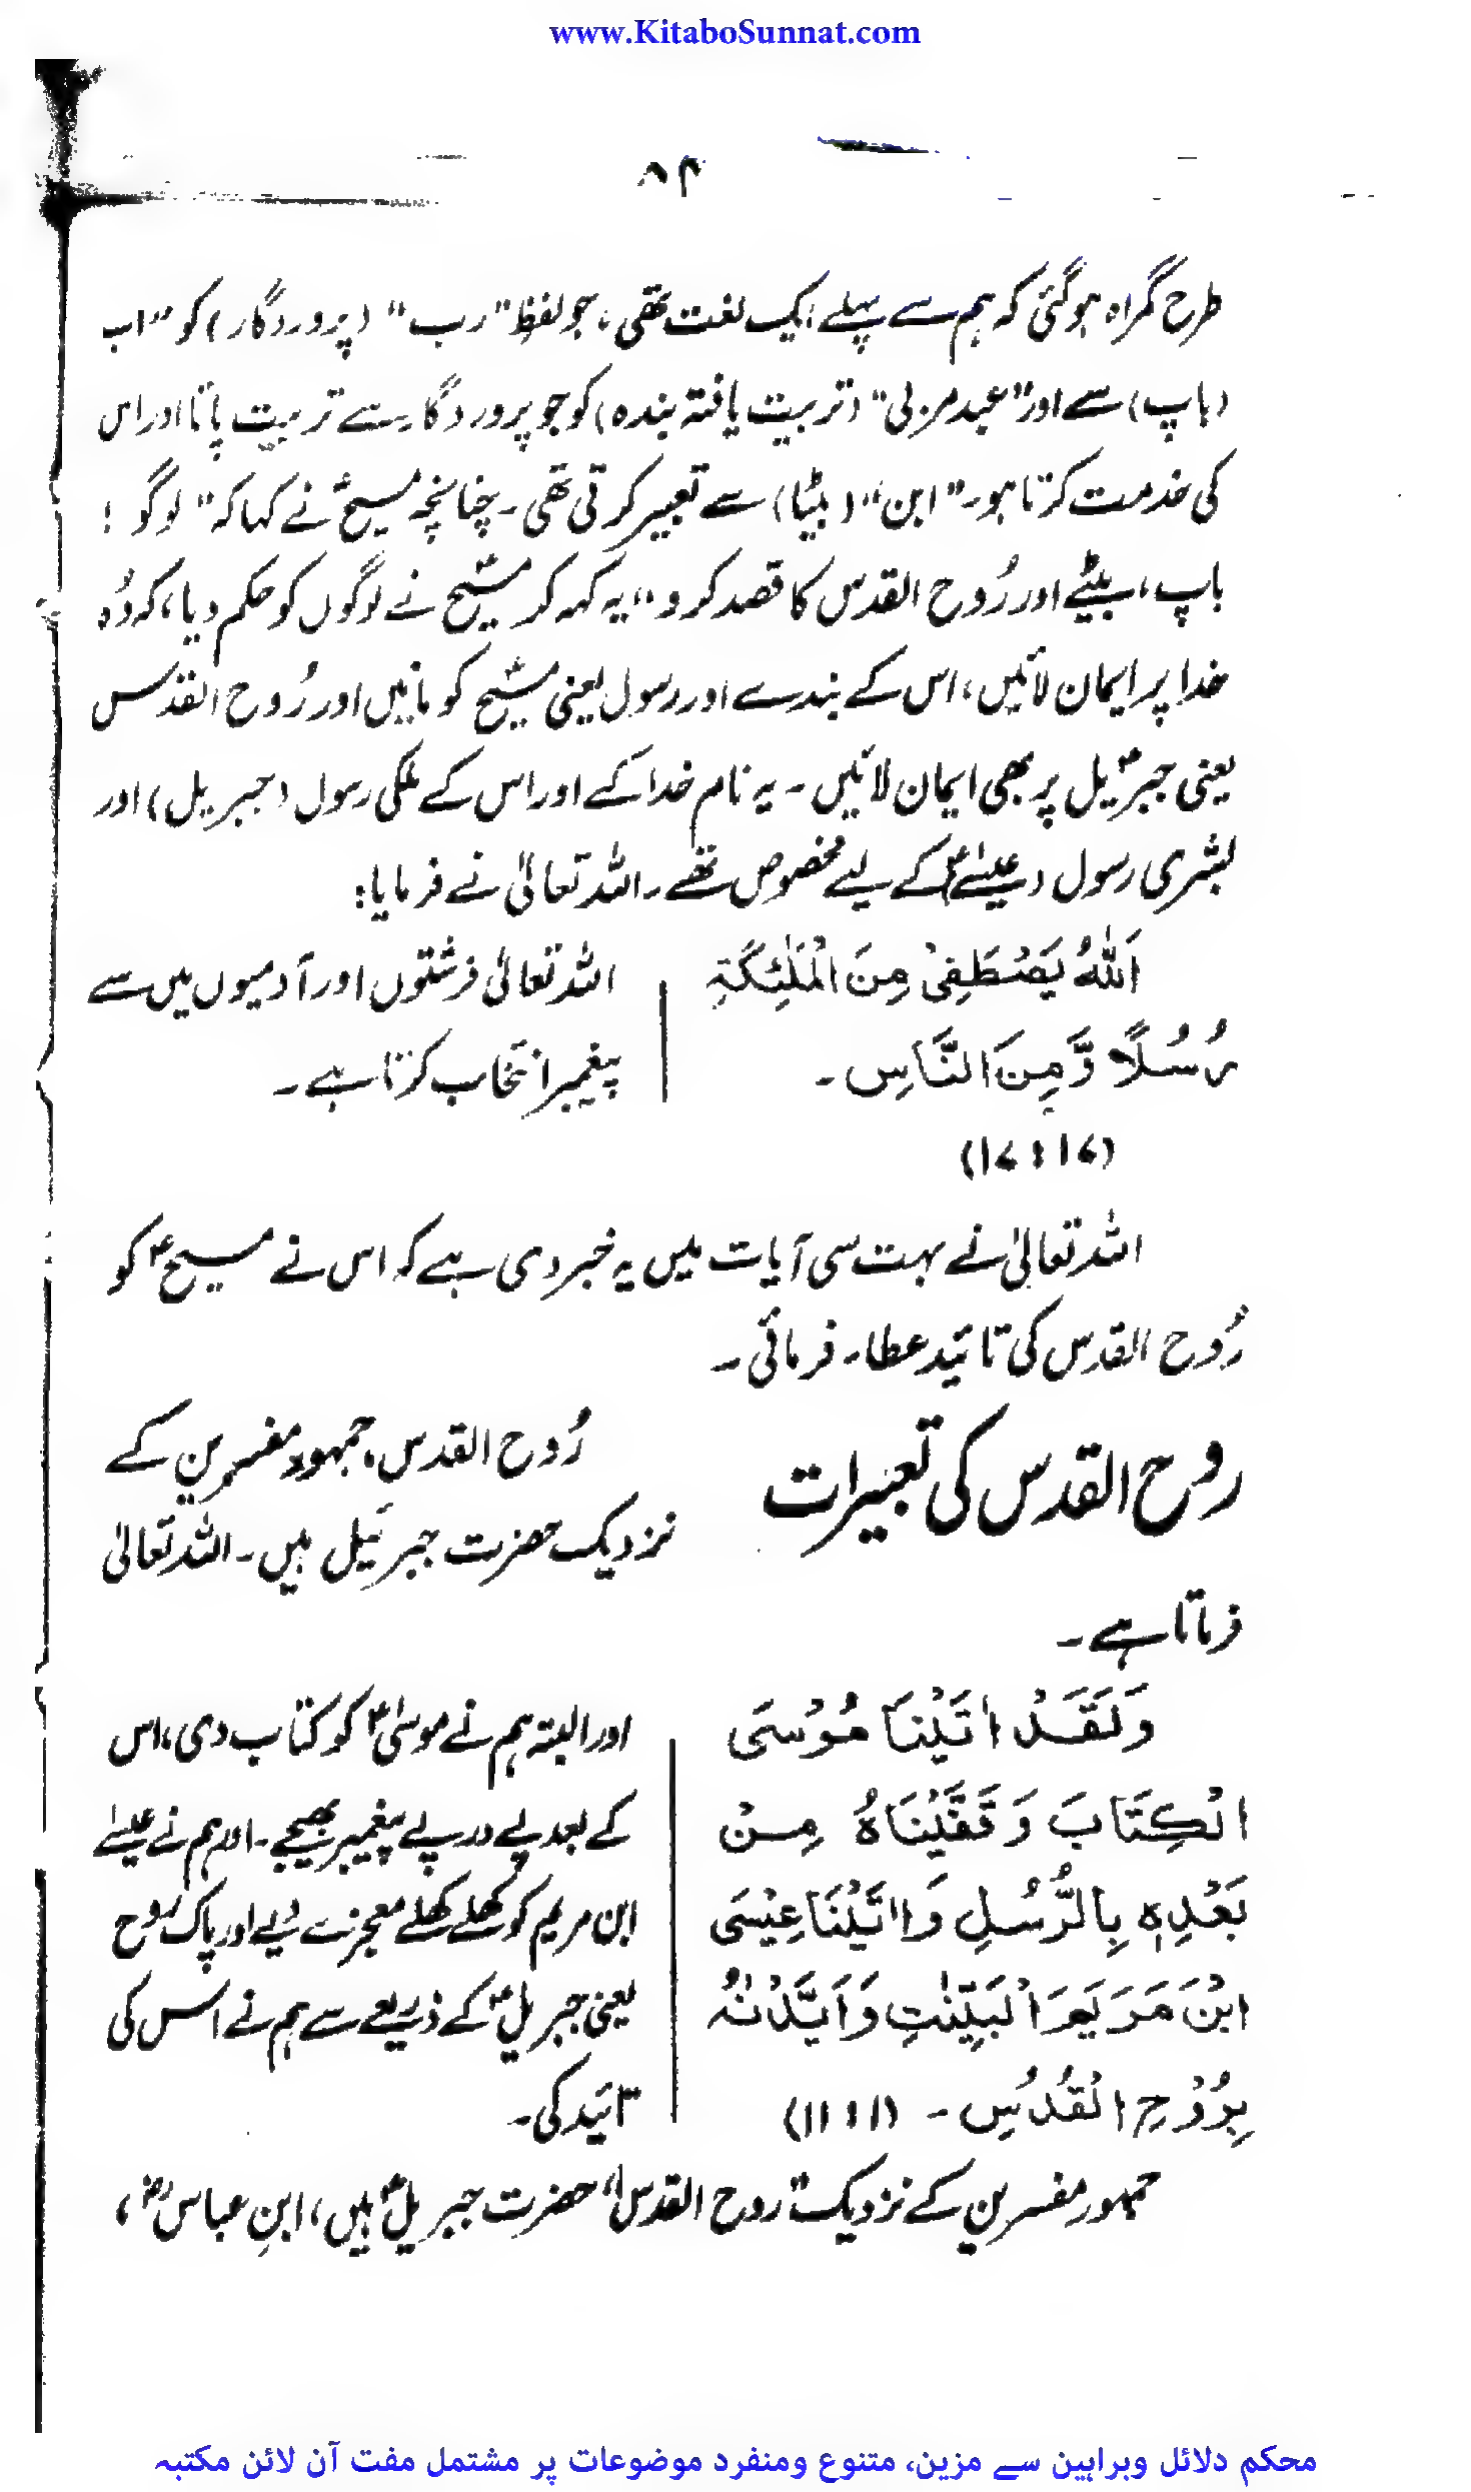 www.KitaboSunnat.com
۸۴
طرح گمراہ ہو گئی کہ ہم سے پہلے ایک لغت تھی، جو لفظ "رب" (پروردگار) کو "اب
(باپ) سے اور "عبد مربی" (تربیت یافتہ بندہ) کو جو پروردگار سے تربیت پاتا اور اس
کی خدمت کرتا ہو۔ "ابن" (بیٹا) سے تعبیر کرتی تھی۔ چنانچہ مسیحؑ نے کہا کہ "لوگو!
باپ، بیٹے اور رُوح القدس کا قصد کرو" یہ کہہ کر مسیحؑ نے لوگوں کو حکم دیا، کہ وُہ
خدا پر ایمان لائیں، اس کے بندے اور رسول یعنی مسیحؑ کو مانیں اور رُوح القدس
یعنی جبرؑیل پر بھی ایمان لائیں۔ یہ نام خدا کے اور اس کے ملکی رسول (جبریل) اور
بشری رسول (عیسٰےؑ) کے لیے مخصوص تھے۔ اللہ تعالیٰ نے فرمایا:
اَللّٰهُ يَصْطَفِىْ مِنَ الْمَلٰٓئِكَةِ
رُسُلًا وَّمِنَ النَّاسِ۔
(۱۷ : ۱۷)
اللہ تعالیٰ فرشتوں اور آدمیوں میں سے
پیغمبر انتخاب کرتا ہے۔
اللہ تعالیٰ نے بہت سی آیات میں یہ خبر دی ہے کہ اس نے مسیحؑ کو
رُوح القدس کی تائید عطاء فرمائی۔
روح القدس کی تعبیرات
رُوح القدس، جمہور مفسرین کے
نزدیک حضرت جبرئیل ہیں۔ اللہ تعالیٰ
فرماتا ہے۔
وَلَقَدْ اٰتَيْنَا مُوْسَى
الْكِتَابَ وَقَفَّيْنَاهُ مِنْ
بَعْدِهٖ بِالرُّسُلِ وَاٰتَيْنَا عِيْسَى
ابْنَ مَرْيَمَ الْبَيِّنٰتِ وَاَيَّدْنٰهُ
بِرُوْحِ الْقُدُسِ۔ (۱ : ۱۱)
اور البتہ ہم نے موسیٰؑ کو کتاب دی، اس
کے بعد پے در پے پیغمبر بھیجے۔ اور ہم نے عیسٰے
ابن مریم کو کھلے کھلے معجزے دیے اور پاک روح
یعنی جبریلؑ کے ذریعے سے ہم نے اس کی
تائید کی۔
جمہور مفسرین کے نزدیک "روح القدس" حضرت جبریلؑ ہیں، ابنِ عباسؓ،
محکم دلائل وبراہین سے مزین، متنوع ومنفرد موضوعات پر مشتمل مفت آن لائن مکتبہ